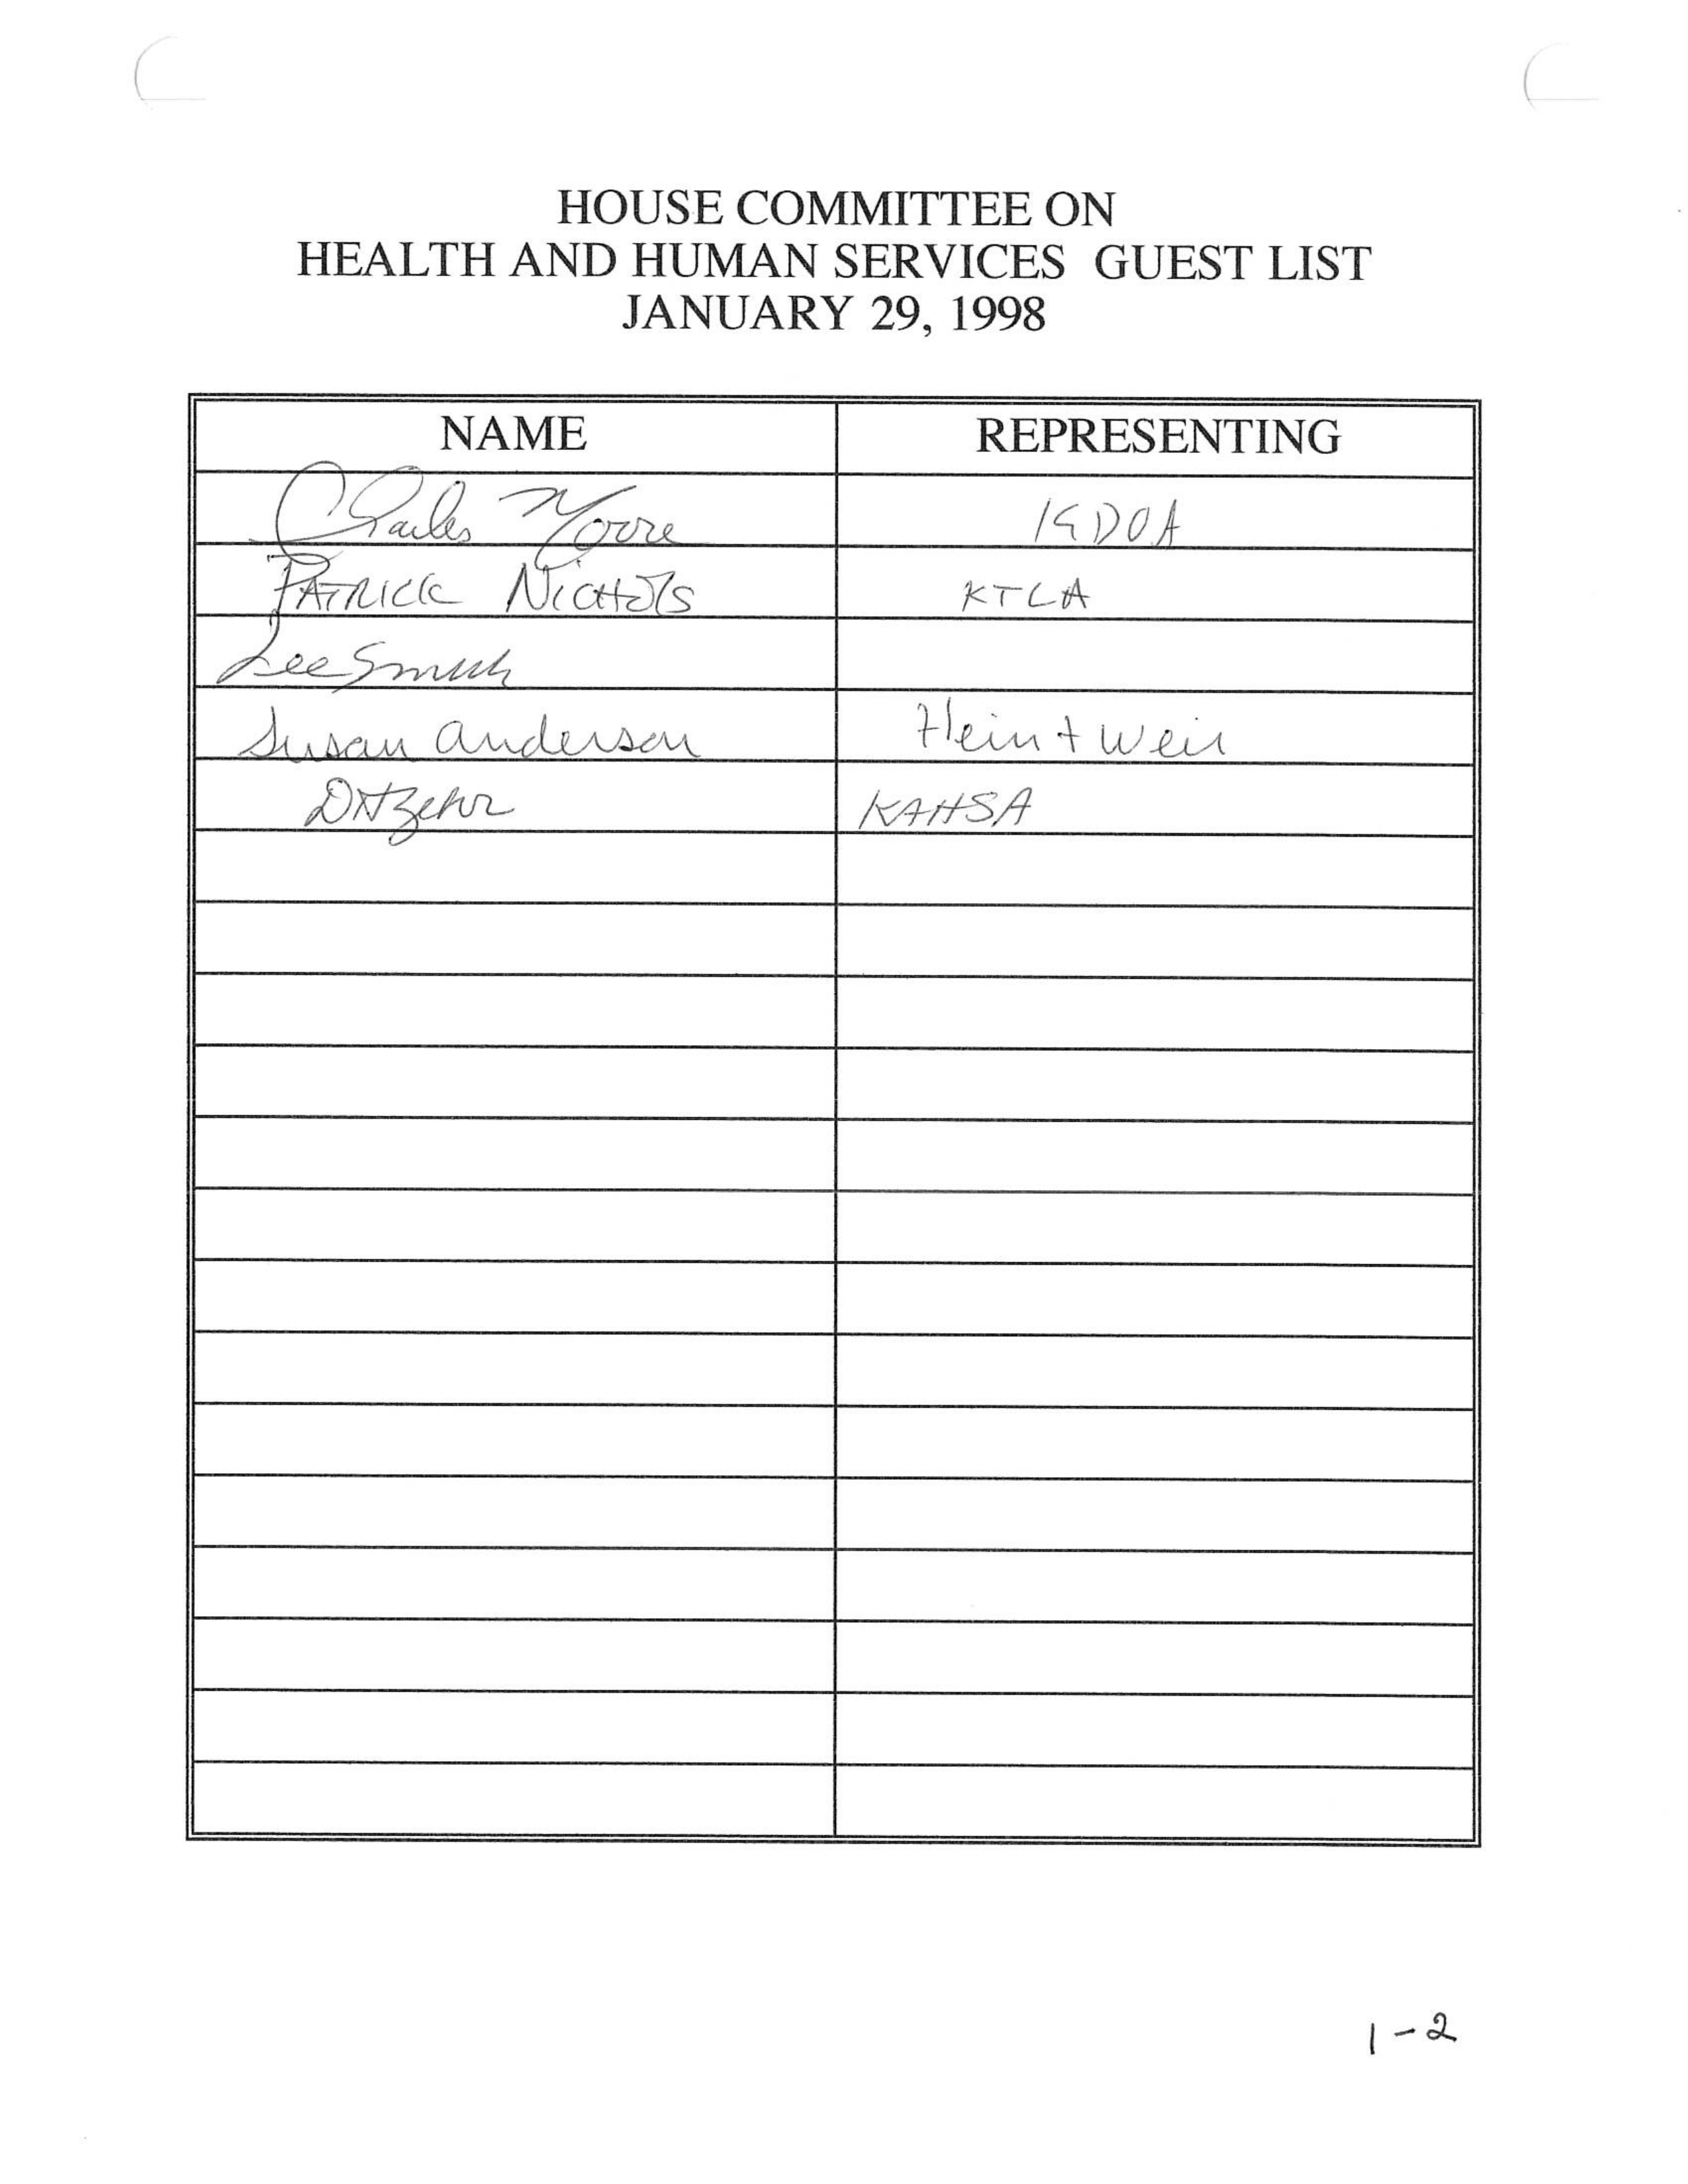 HOUSE COMMITTEE ON
HEALTH AND HUMAN SERVICES GUEST LIST
JANUARY 29, 1998
NAME REPRESENTING
Charles Moore KDOA
PATRICK NICHOLS KTLA
Lee Smith
Susan Anderson Hein + Weir
KAHSA
1-2